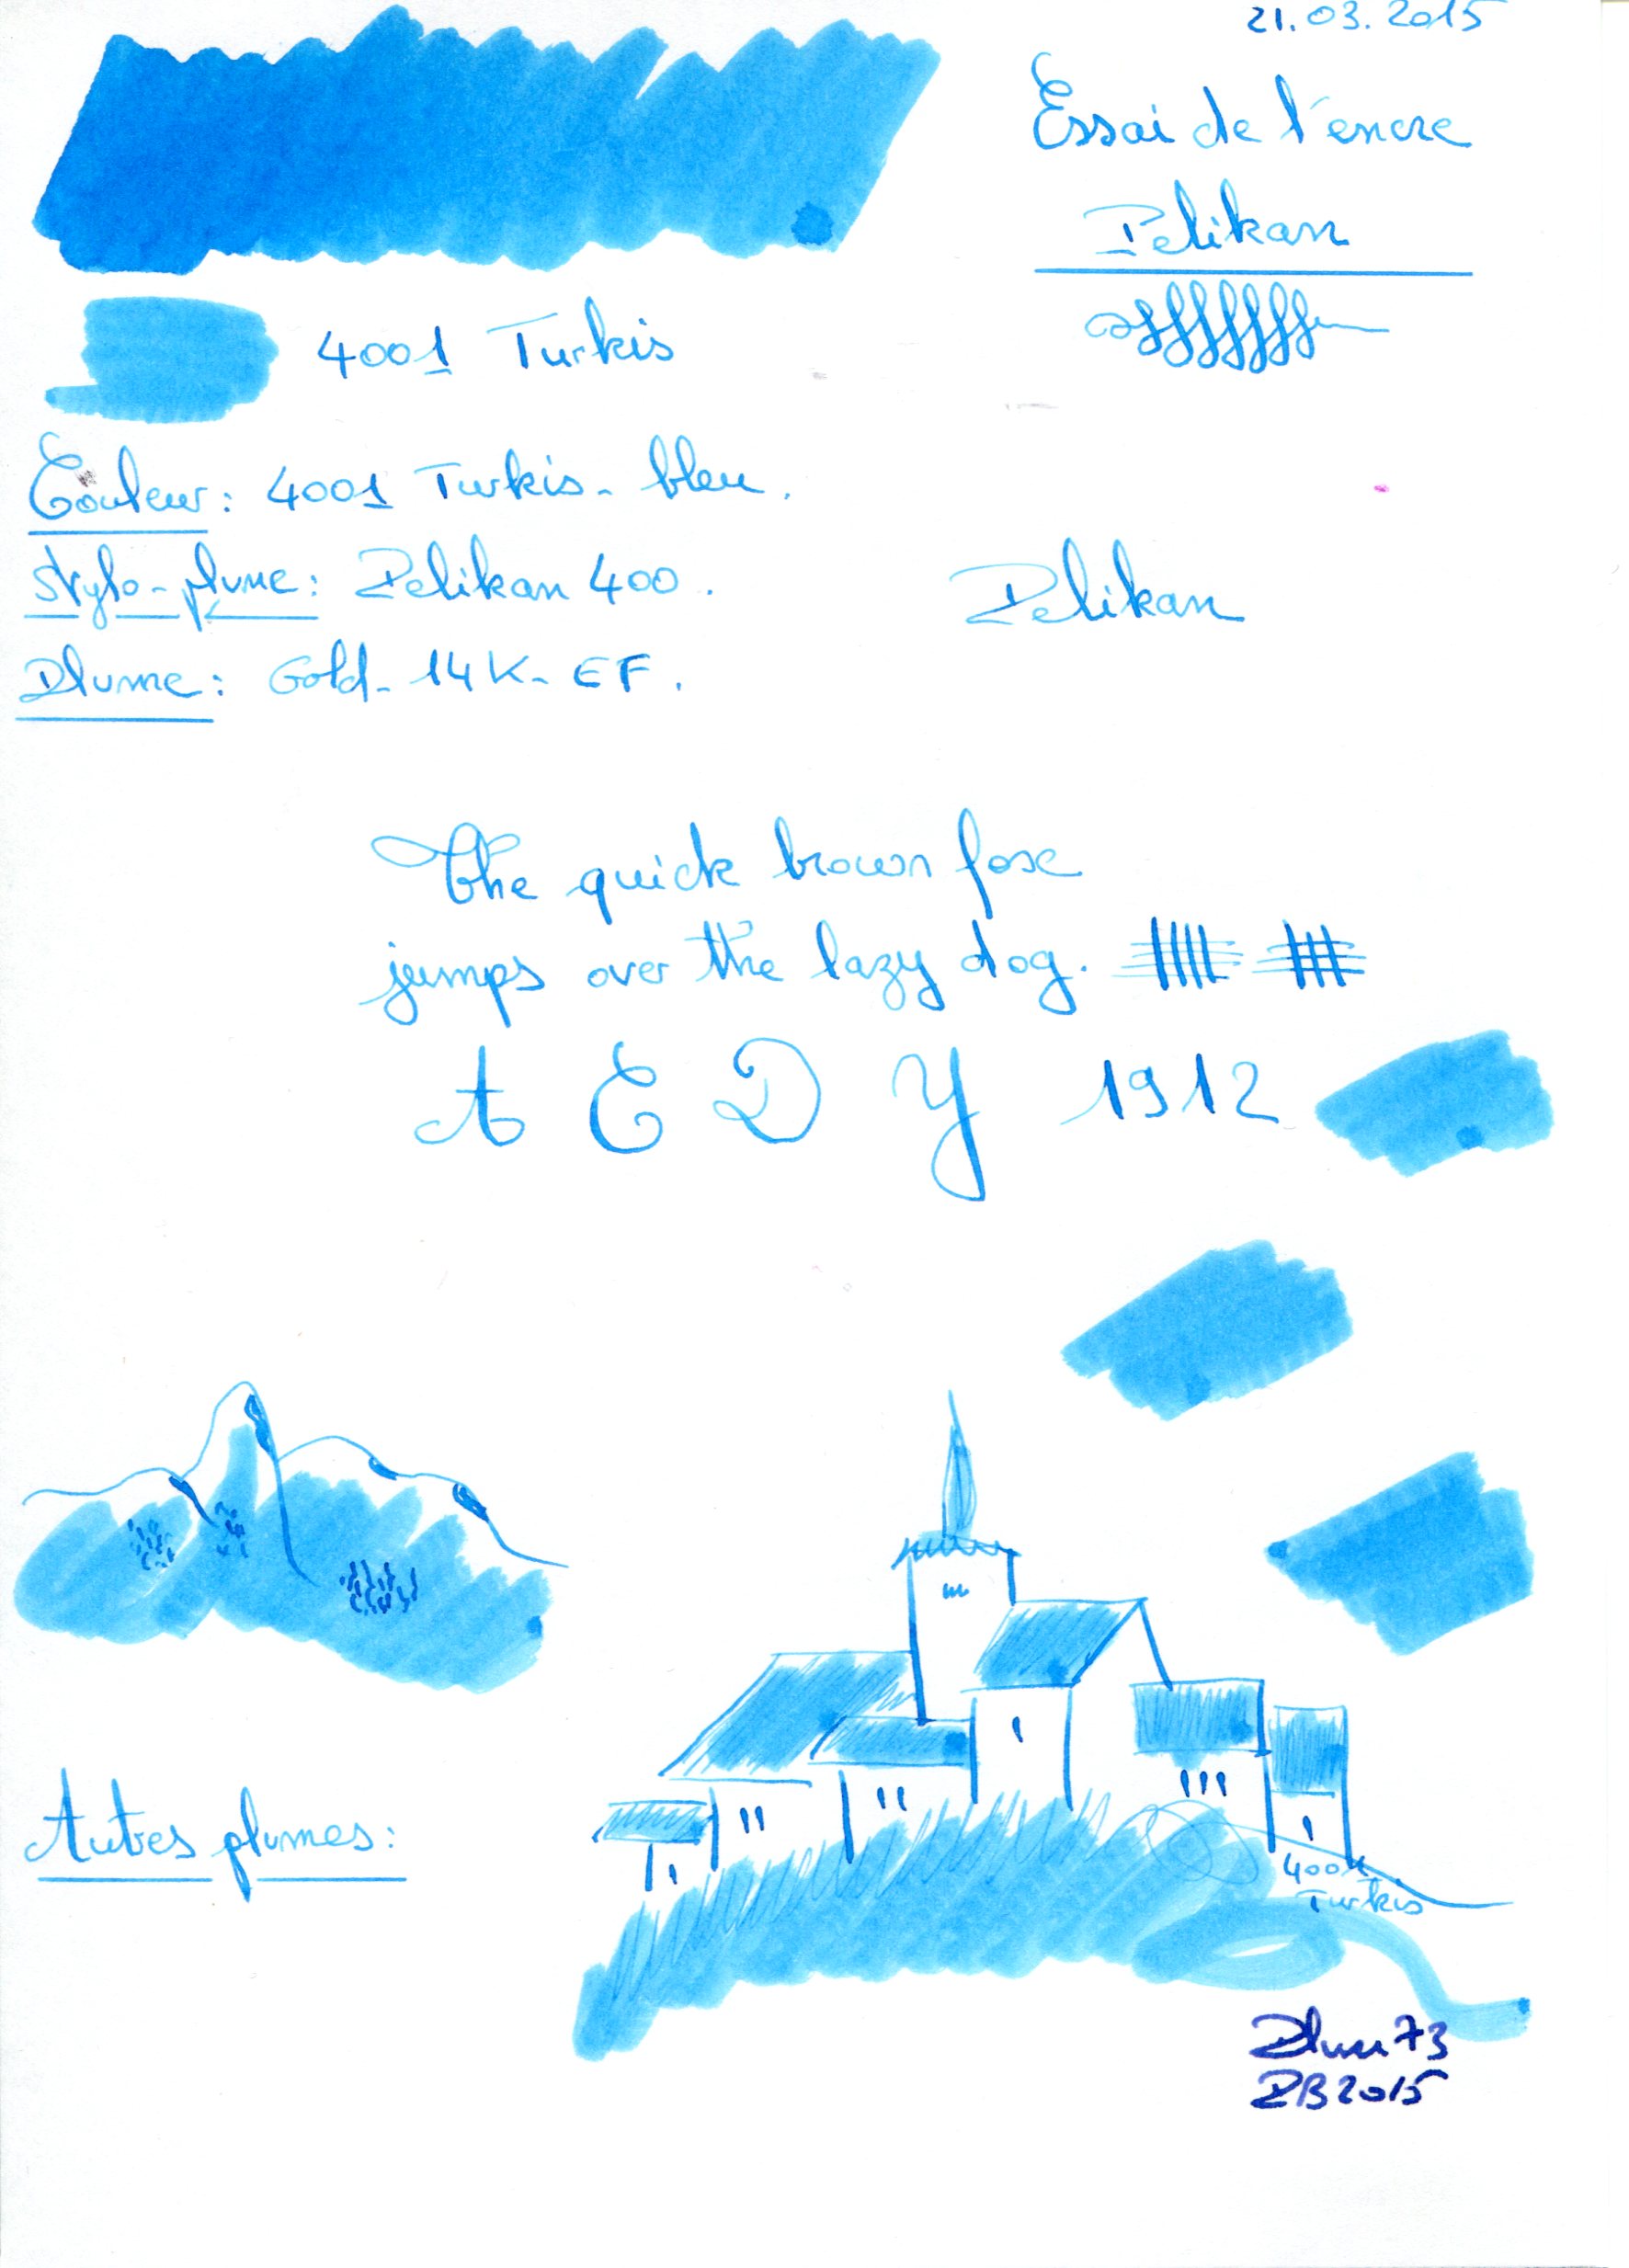 21.03.2015
Essai de l'encre
Pelikan
4001 Turkis
Couleur: 4001 Turkis-bleu.
Stylo-plume: Pelikan 400.
Pelikan
Plume: Gold-14K-EF.
The quick brown fox
jumps over the lazy dog.
A E D Y 1912
Autres plumes:
4001
Turkis
Plum73
PB2015